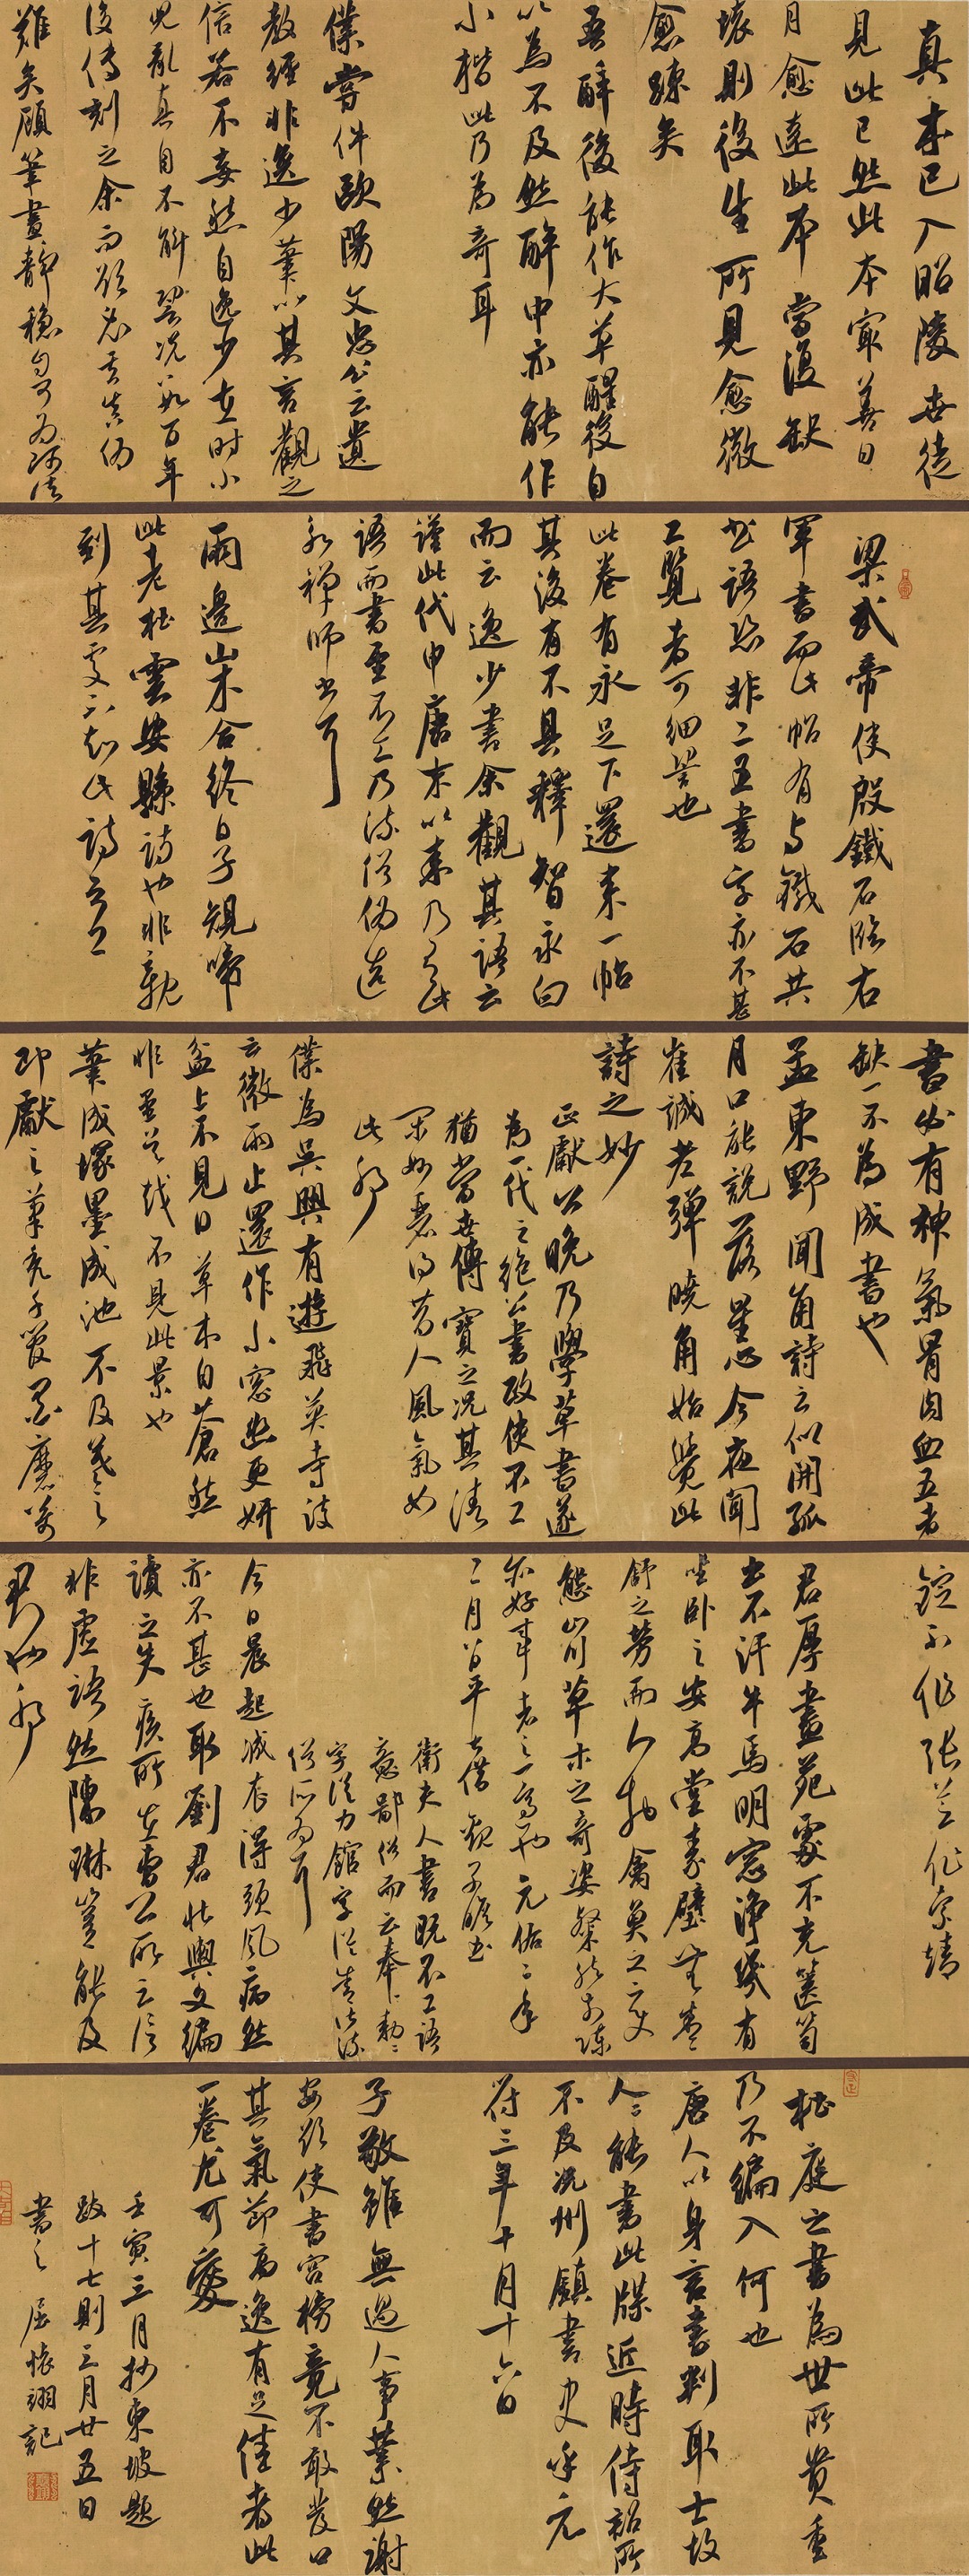 真本已入昭陵世徒
見此已然此本最善日
月愈遠此本當復缺
壞則後生所見愈微
愈疎矣
吾醉後能作大草醒後自
以為不及然醉中亦能作
小楷此乃為奇耳
僕嘗聞歐陽文忠公云遺
教經非逸少筆以其言觀之
信若不妄然自逸少在時小
兒亂真自不解辨況數百年
後傳刻之余而欲必其真偽
難矣顧筆畫靜穩自可為師法
梁武帝使殷鐵石臨右
軍書而此帖有与鐵石共
書語恐非二王書字亦不甚
工覽者可細辨也
此卷有永足下還來一帖
其後有不具釋智永白
而云逸少書余觀其語云
謹此代申唐末以來乃有此
語而書至不工乃流俗偽造
永禪師書耳
兩邊山木合終日子規啼
此老杜雲安縣詩也非親
到其處不知此詩之工
書必有神氣骨肉血五者
缺一不為成書也
孟東野聞角詩云似開孤
月口能說落星心今夜聞
崔誠老彈曉角始覺此
詩之妙
正獻公晚乃學草書遂
為一代之絕公書政使不工
猶當世傳寶之況其清
閑妙麗得昔人風氣如
此耶
僕為吳興有遊飛英寺詩
云微雨止還作小窓幽更妍
盆山不見日草木自蒼然
非至吳越不見此景也
筆成塚墨成池不及羲之
即獻之筆禿千管墨磨萬
鋌不作張芝作索靖
君厚畫苑處不充篋笥
出不汗牛馬明窓淨幾有
坐卧之安高堂素壁無卷
舒之勞而人物禽魚之變
態山川草木之奇姿粲然前陳
亦好事者之一適也元佑二年
二月八日平叔借觀子瞻書
衛夫人書既不工語
意鄙俗而云奉勅勅
字從力館字從舍皆流
俗所為耳
今日晨起減衣得頭風病然
亦不甚也取劉君壯輿文編
讀之失疾所在曹公所云信
非虛語然陳琳豈能及
君仙耶
杜庭之書為世所貴重
乃不編入何也
唐人以身言書判取士故
人人能書此牒近時待詔所
不及況州鎮書史乎元
符三年十月十六日
子敬雖無過人事業然謝
安欲使書宮榜竟不敢發口
其氣節高逸有足佳者此
一卷尤可愛
壬寅三月抄東坡題
跋十七則三月廿五日
書之 屈懷翊記